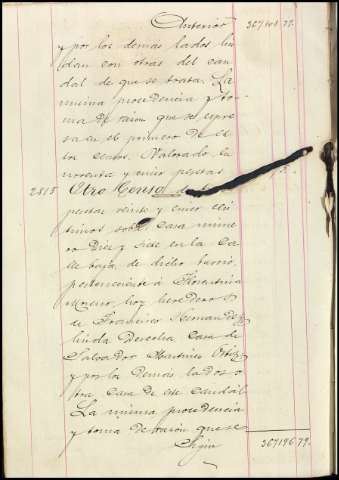 Anterior 367101.79.
y por los demas lados lin
dan con otras del cau
dal de que se trata. La
misma procedencia y to
ma de razon que se espre
sa en el primero de es
tos censos. Valorado en
noventa y cinco pesetas
2815 Otro Censo de
pesetas veinte y cinco cén
timos sobre casa núme
ro Diez y Siete en la Ca
lle baja de dicho barrio,
perteneciente á Florentina
Moreno, hoy herederos
de Francisco Hernandez
linda Derecha Casa de
Salvador Martinez Ortiz
y por los demas lados o
tra Casa de este Caudál
La misma procedencia
y toma de razón que se
Sigue 367196.79.